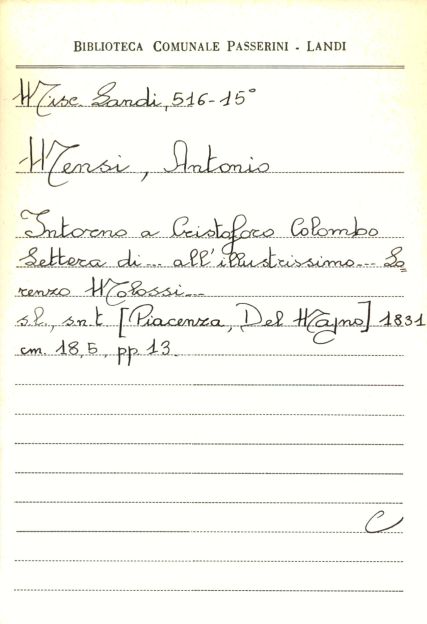 BIBLIOTECA COMUNALE PASSERINI - LANDI
Misc. Landi, 516-15°
Mensi, Antonio
Intorno a Cristoforo Colombo
Lettera di... all'illustrissimo... Lo=
renzo Molossi...
s.l., s.n.t [Piacenza, Del Majno] 1831
cm. 18,5, pp 13.
C